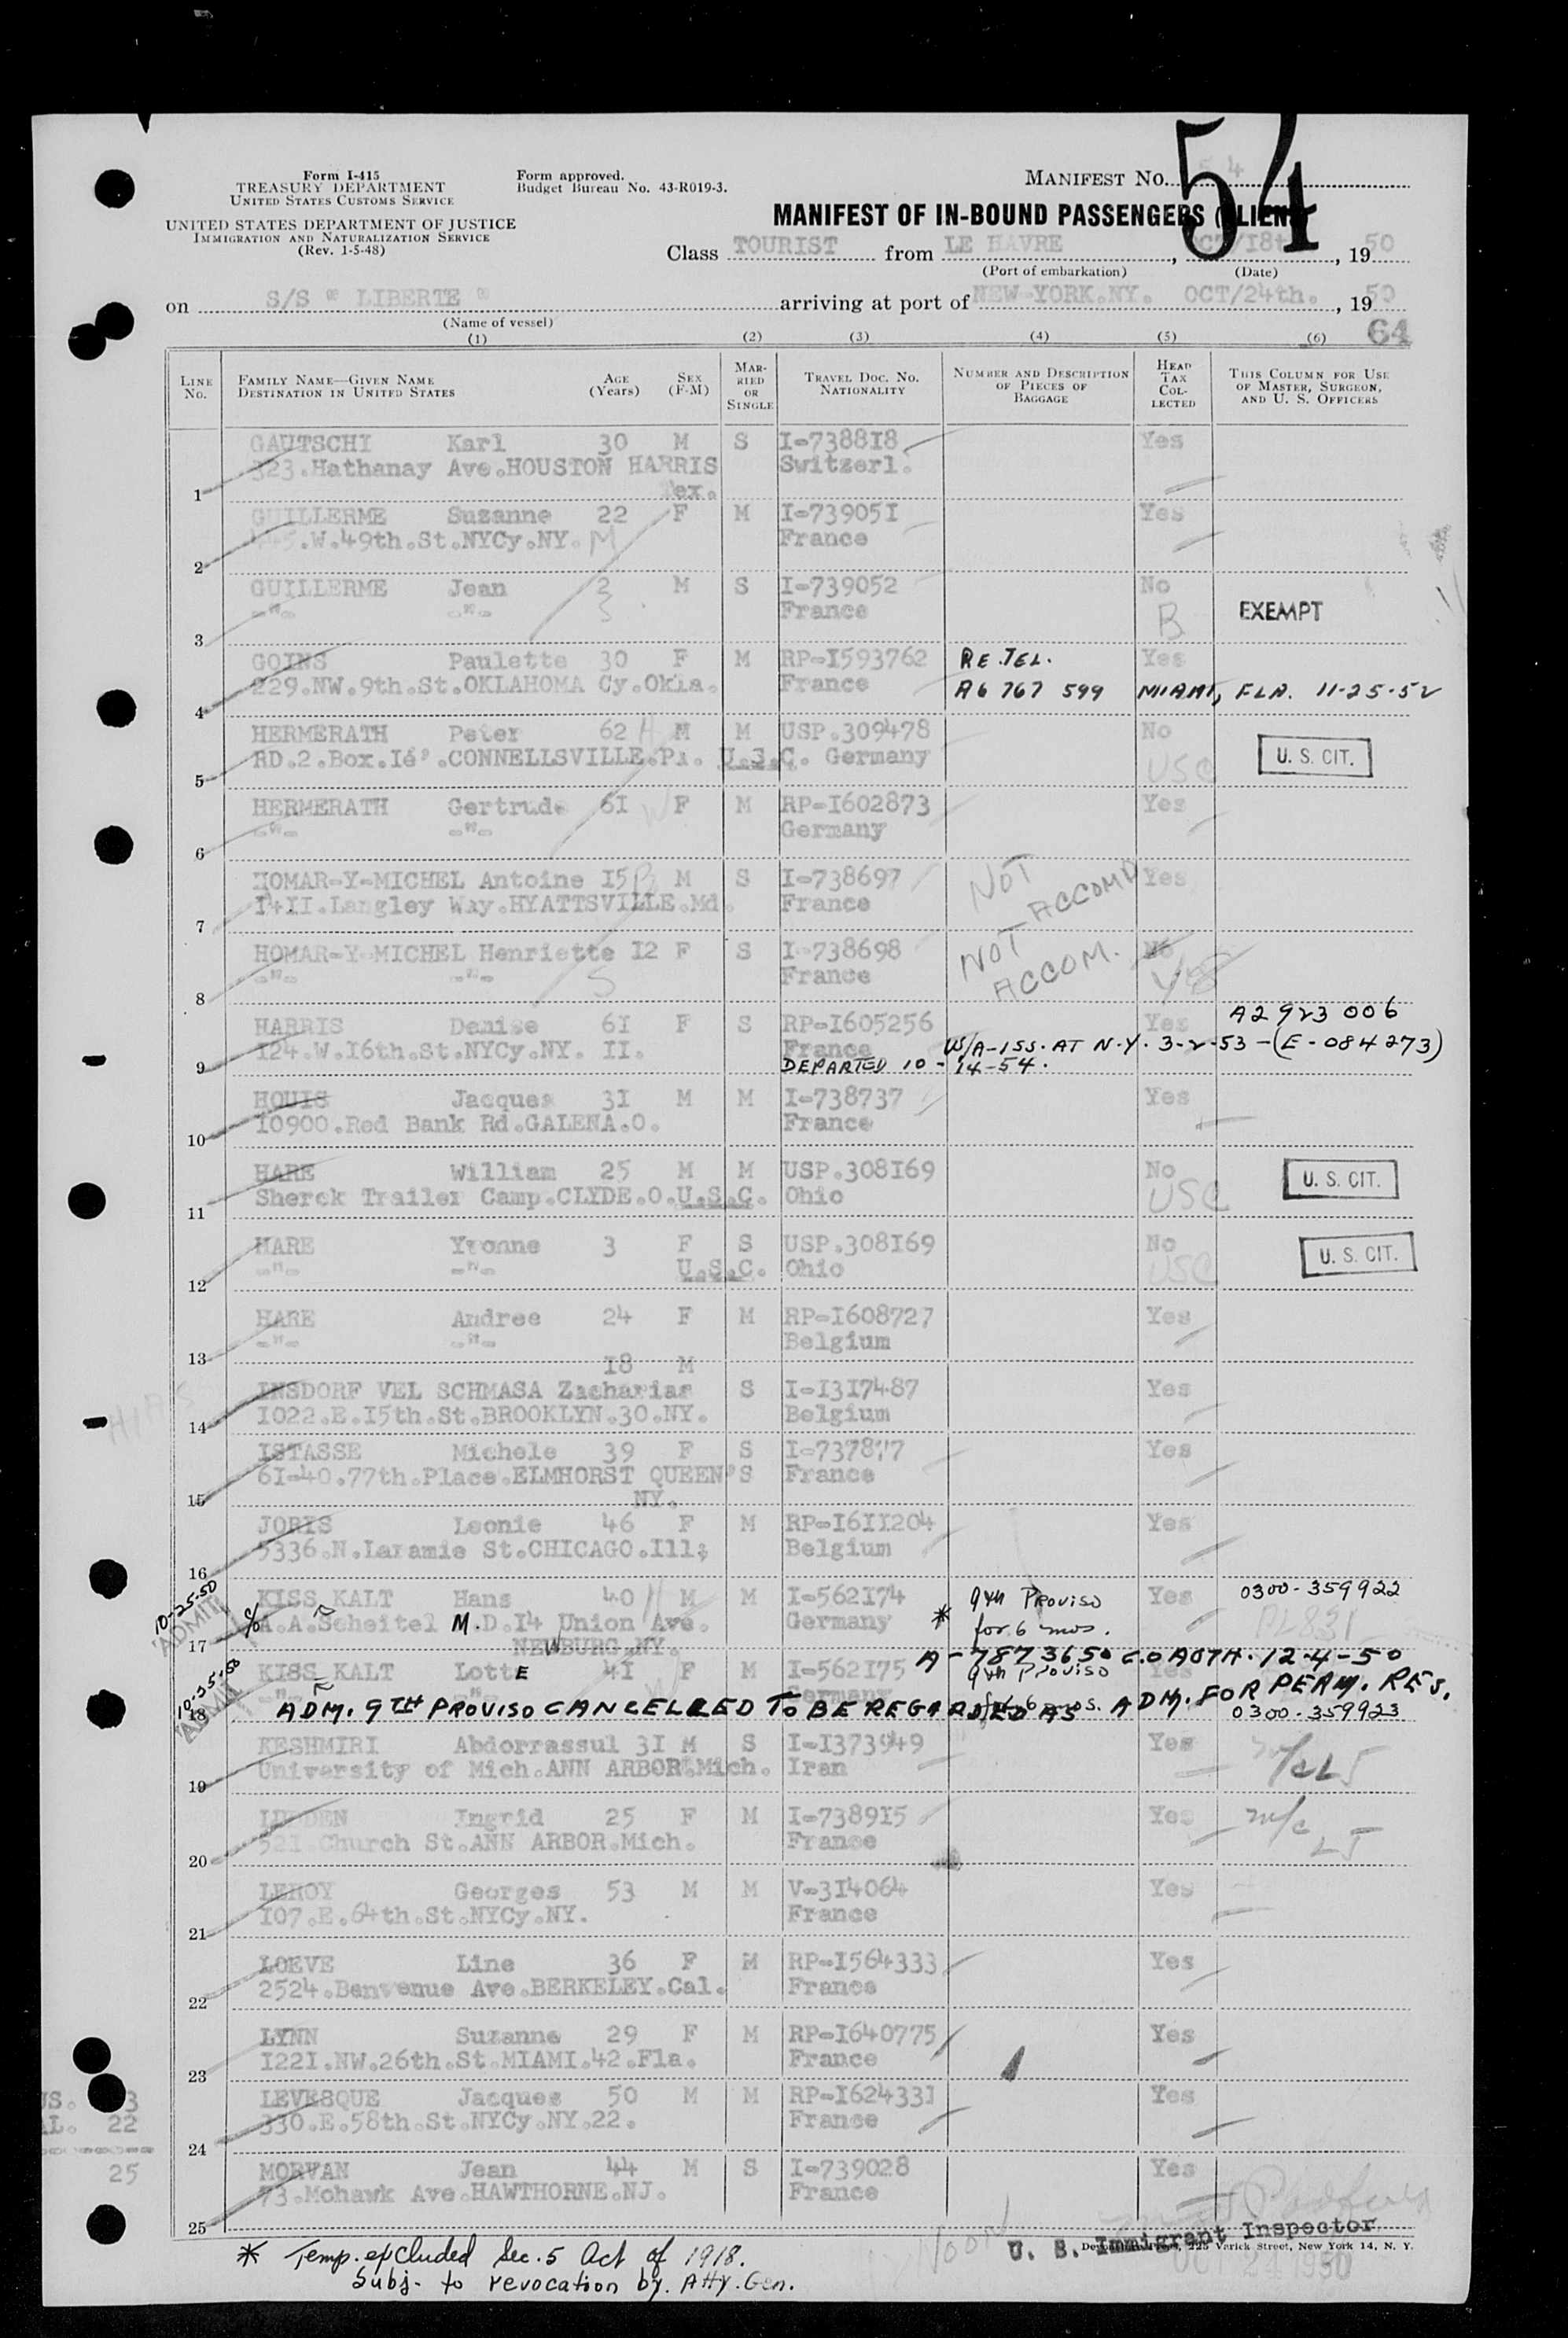 54
Form I-415
TREASURY DEPARTMENT
UNITED STATES CUSTOMS SERVICE
UNITED STATES DEPARTMENT OF JUSTICE
IMMIGRATION AND NATURALIZATION SERVICE
(Rev. 1-5-48)
Form approved.
Budget Bureau No. 43-R019-3.
MANIFEST No. 54
MANIFEST OF IN-BOUND PASSENGERS (ALIENS)
Class TOURIST from LE HAVRE, OCT/18th, 1950
(Port of embarkation) (Date)
on S/S " LIBERTE " arriving at port of NEW-YORK.NY. OCT/24th., 1950
(Name of vessel)
(1) (2) (3) (4) (5) (6) 64
LINE No. FAMILY NAME—GIVEN NAME DESTINATION IN UNITED STATES AGE (Years) SEX (F-M) MARRIED OR SINGLE TRAVEL DOC. No. NATIONALITY NUMBER AND DESCRIPTION OF PIECES OF BAGGAGE HEAD TAX COLLECTED THIS COLUMN FOR USE OF MASTER, SURGEON, AND U. S. OFFICERS
GAUTSCHI Karl 30 M S I-738818 Yes
323.Hathanay Ave.HOUSTON HARRIS Switzerl.
1 Tex.
GUILLERME Suzanne 22 F M I-739051 Yes
.W.49th.St.NYCy.NY. M France
2
GUILLERME Jean 2 M S I-739052 No
-"- -"- 3 France B EXEMPT
3
GOINS Paulette 30 F M RP-1593762 RE.TEL. Yes
229.NW.9th.St.OKLAHOMA Cy.Okla. France A6 767 599 MIAMI, FLA. 11-25-52
4
HERMERATH Peter 62 H M M USP.309478 No
RD.2.Box..CONNELLSVILLE.Pa. U.S.C. Germany USC U. S. CIT.
5
HERMERATH Gertrude 61 W F M RP-1602873 Yes
-"- -"- Germany
6
HOMAR-Y-MICHEL Antoine 15 B M S I-738697 NOT ACCOMP Yes
1411.Langley Way.HYATTSVILLE.Md. France
7
HOMAR-Y-MICHEL Henriette 12 F S I-738698 NOT ACCOM. No
-"- -"- S France Yes
8
HARRIS Denise 61 F S RP-1605256 Yes A2 923 006
124.W.16th.St.NYCy.NY. II. France W/A-ISS. AT N.Y. 3-2-53-(E-084273)
9 DEPARTED 10-14-54.
HOUIS Jacques 31 M M I-738737 Yes
10900.Red Bank Rd.GALENA.O. France
10
HARE William 25 M M USP.308169 No
Sherck Trailer Camp.CLYDE.O.U.S.C. Ohio USC U. S. CIT.
11
HARE Yvonne 3 F S USP.308169 No
-"- -"- U.S.C. Ohio USC U. S. CIT.
12
HARE Andree 24 F M RP-1608727 Yes
-"- -"- Belgium
13
18 M
INSDORF VEL SCHMASA Zacharias S I-1317487 Yes
HIAS 1022.E.15th.St.BROOKLYN.30.NY. Belgium
14
ISTASSE Michele 39 F S I-737877 Yes
61-40.77th.Place.ELMHORST QUEEN'S France
15 NY.
JORIS Leonie 46 F M RP-1611204 Yes
5336.N.Laramie St.CHICAGO.Ill; Belgium
16
10-25-50 ADMIT
KISS KALT Hans 40 H M M I-562174 * 9th Proviso Yes 0300-359922
c/o A.A.Scheitel M.D.14 Union Ave. Germany for 6 mos.
17 NEWBURG.NY.
A-7873650 C.O AUTH. 12-4-50
10-25-50 ADMIT
KISS KALT LottE 41 W F M I-562175 9th Proviso Yes
-"- -"- Germany for 6 mos.
ADM. 9TH PROVISO CANCELLED TO BE REGARDED AS ADM. FOR PERM. RES.
18 0300-359923
KESHMIRI Abdorrassul 31 M S I-1373949 Yes
University of Mich.ANN ARBOR.Mich. Iran
19
Ingrid 25 F M I-738915 Yes m/c
521.Church St.ANN ARBOR.Mich. France LJ
20
LEROY Georges 53 M M V-314064 Yes
107.E.64th.St.NYCy.NY. France
21
LOEVE Line 36 F M RP-1564333 Yes
2524.Benvenue Ave.BERKELEY.Cal. France
22
LYNN Suzanne 29 F M RP-1640775 Yes
1221.NW.26th.St.MIAMI.42.Fla. France
23
US. 3
LEVESQUE Jacques 50 M M RP-1624331 Yes
AL. 22 330.E.58th.St.NYCy.NY.22. France
24
25
MORVAN Jean 44 M S I-739028 Yes
73.Mohawk Ave.HAWTHORNE.NJ. France
25
* Temp. excluded Sec. 5 Act of 1918.
Subj. to revocation by Atty. Gen.
Noon
U. S. Immigrant Inspector
Varick Street, New York 14, N. Y.
OCT 24 1950